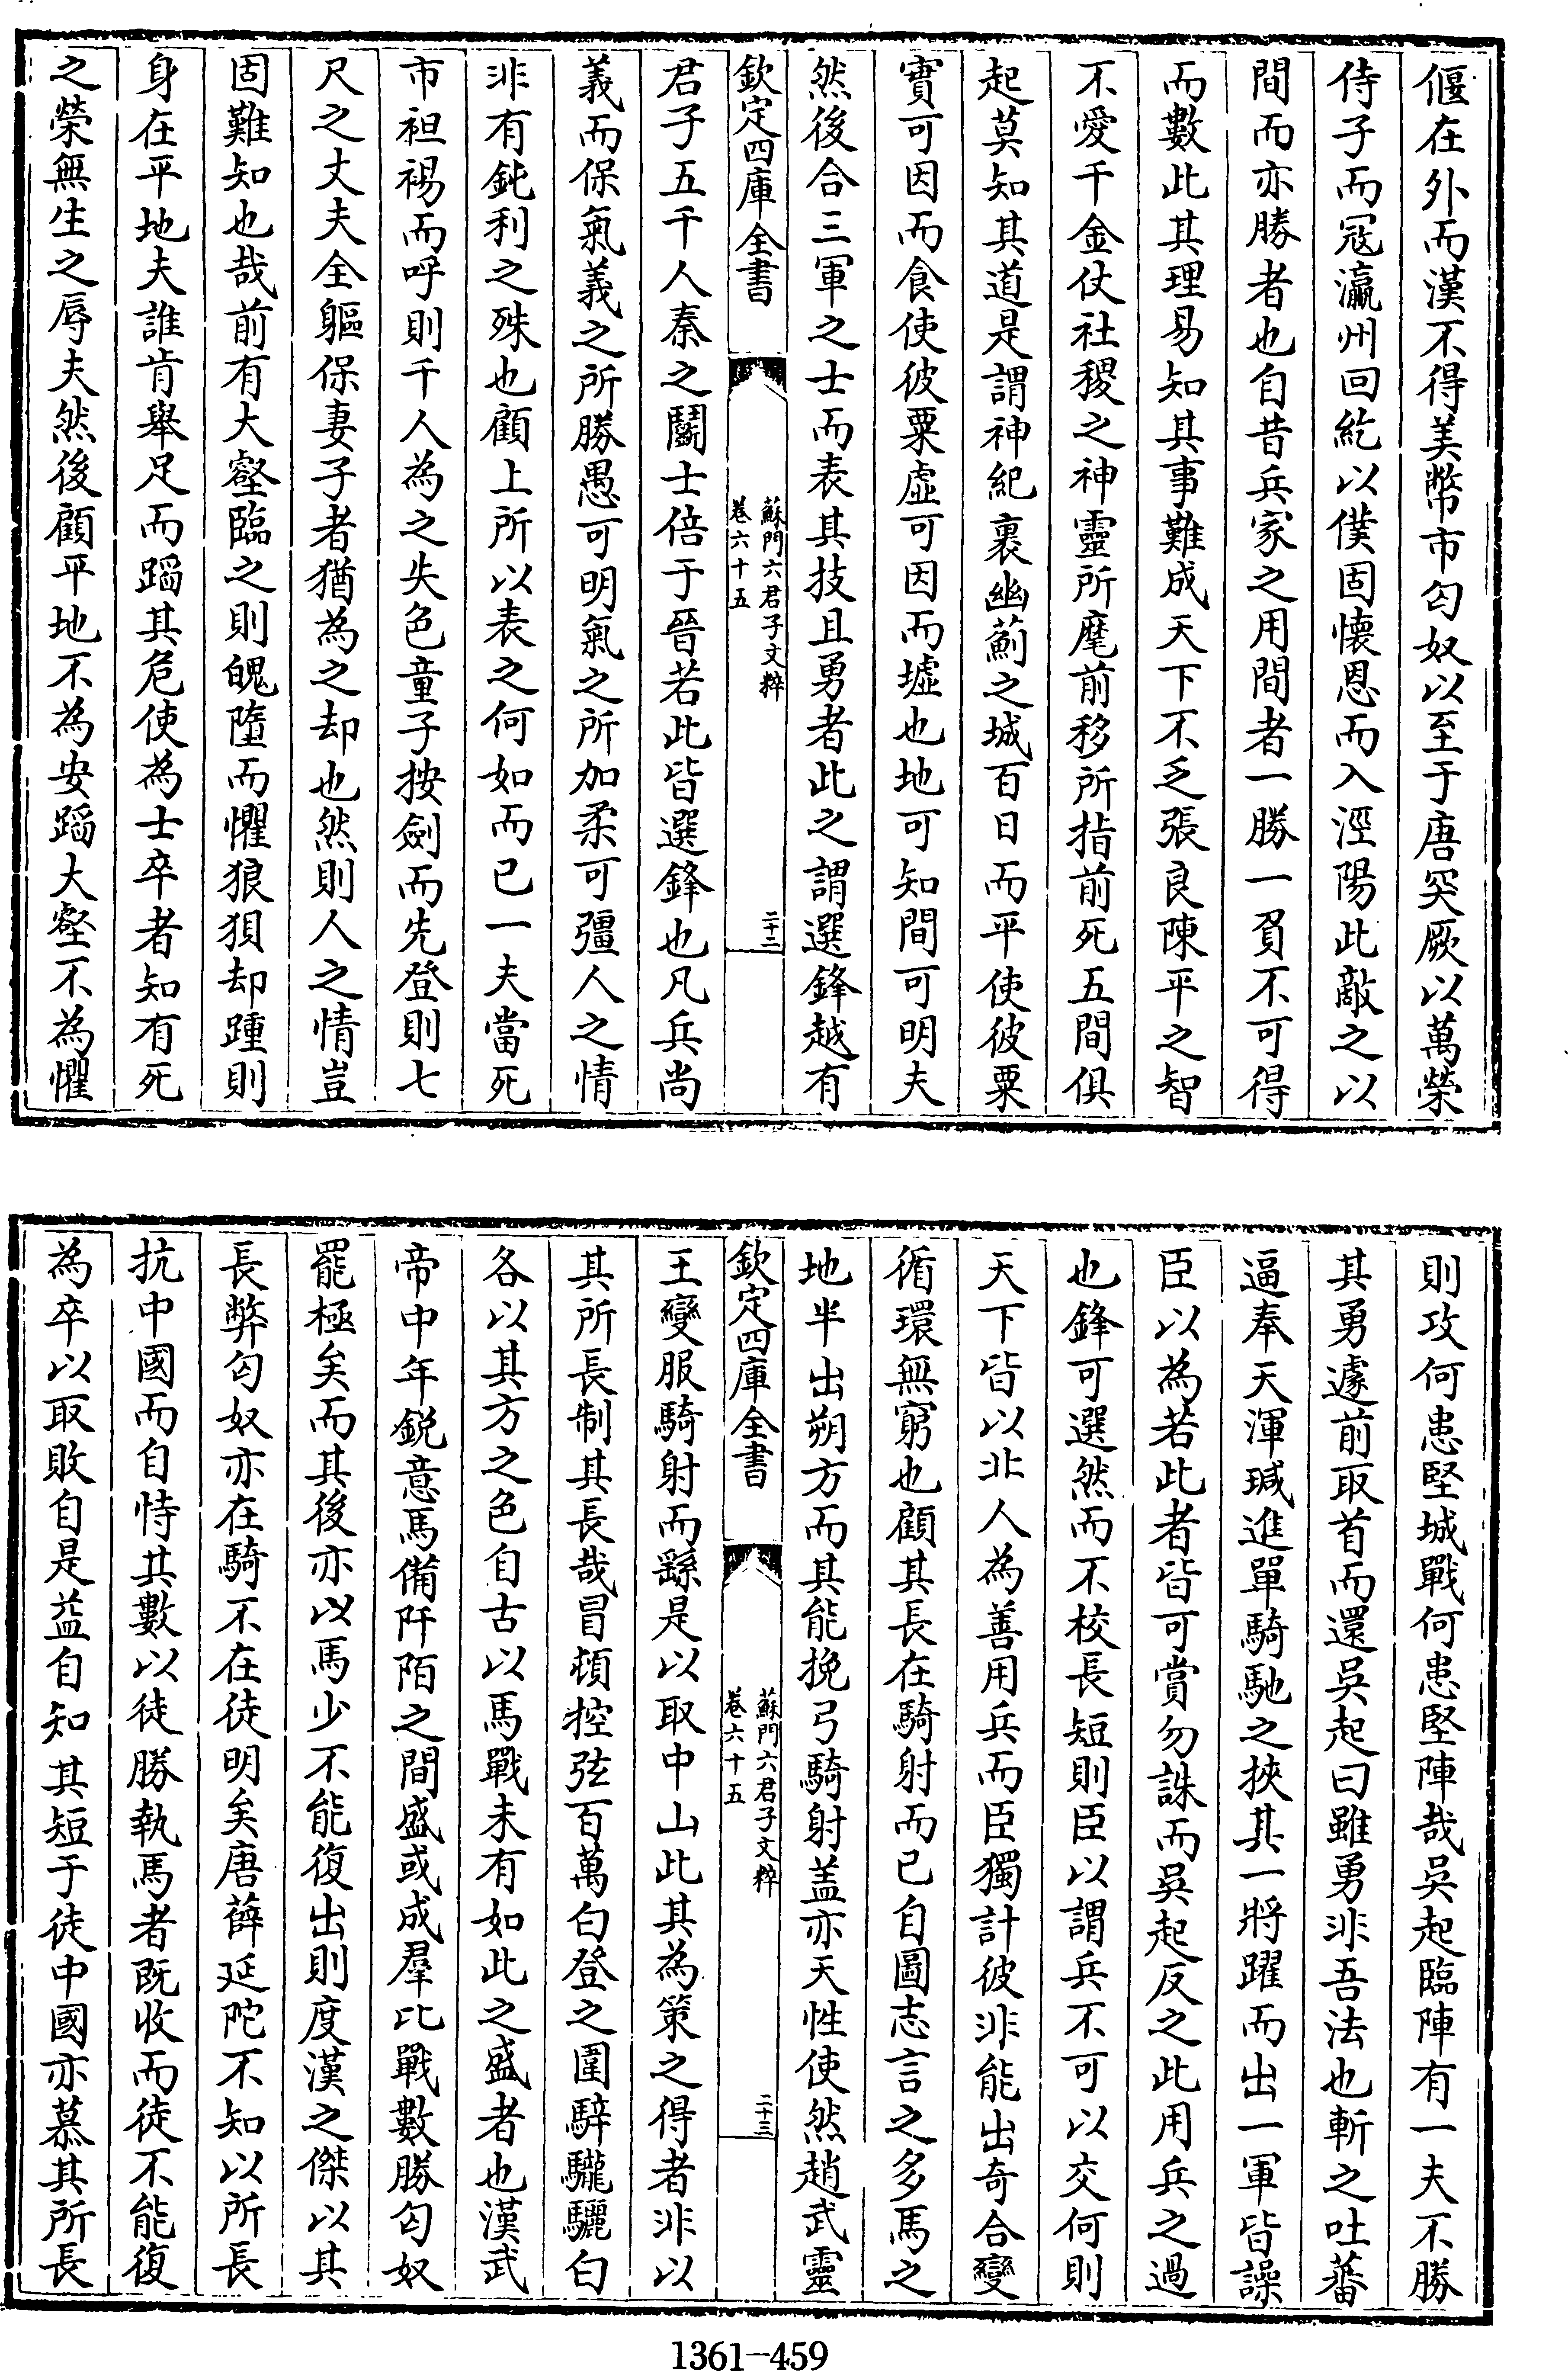 偃在外而漢不得美幣市匈奴以至于唐突厥以萬榮
侍子而冦瀛州回紇以僕固懐恩而入涇陽此敵之以
間而亦勝者也自昔兵家之用間者一勝一負不可得
而數此其理易知其事難成天下不乏張良陳平之智
不愛千金仗社稷之神靈所麾前移所指前死五間俱
起莫知其道是謂神紀裏幽薊之城百日而平使彼粟
實可因而食使彼粟虚可因而墟也地可知間可明夫
然後合三軍之士而表其技且勇者此之謂選鋒越有
欽定四庫全書
蘇門六君子文粹
卷六十五
二十二
君子五千人秦之鬭士倍于晉若此皆選鋒也凡兵尚
義而保氣義之所勝愚可明氣之所加柔可彊人之情
非有鈍利之殊也顧上所以表之何如而已一夫當死
市袒裼而呼則千人為之失色童子按劍而先登則七
尺之丈夫全軀保妻子者猶為之却也然則人之情豈
固難知也哉前有大壑臨之則魄墮而懼狼狽却踵則
身在平地夫誰肯舉足而蹈其危使為士卒者知有死
之榮無生之辱夫然後顧平地不為安蹈大壑不為懼
則攻何患堅城戰何患堅陣哉吳起臨陣有一夫不勝
其勇遽前取首而還吳起曰雖勇非吾法也斬之吐蕃
逼奉天渾瑊進單騎馳之挾其一將躍而出一軍皆譟
臣以為若此者皆可賞勿誅而吳起反之此用兵之過
也鋒可選然而不校長短則臣以謂兵不可以交何則
天下皆以北人為善用兵而臣獨計彼非能出奇合變
循環無窮也顧其長在騎射而已自圖志言之多馬之
地半出朔方而其能挽弓騎射盖亦天性使然趙武靈
欽定四庫全書
蘇門六君子文粹
卷六十五
二十三
王變服騎射而繇是以取中山此其為策之得者非以
其所長制其長哉冒頓控弦百萬白登之圍騂驪驪白
各以其方之色自古以馬戰未有如此之盛者也漢武
帝中年鋭意馬備阡陌之間盛或成羣比戰數勝匈奴
罷極矣而其後亦以馬少不能復出則度漢之傑以其
長弊匈奴亦在騎不在徒明矣唐薛延陀不知以所長
抗中國而自恃其數以徒勝執馬者既收而徒不能復
為卒以取敗自是益自知其短于徒中國亦慕其所長
1361—459